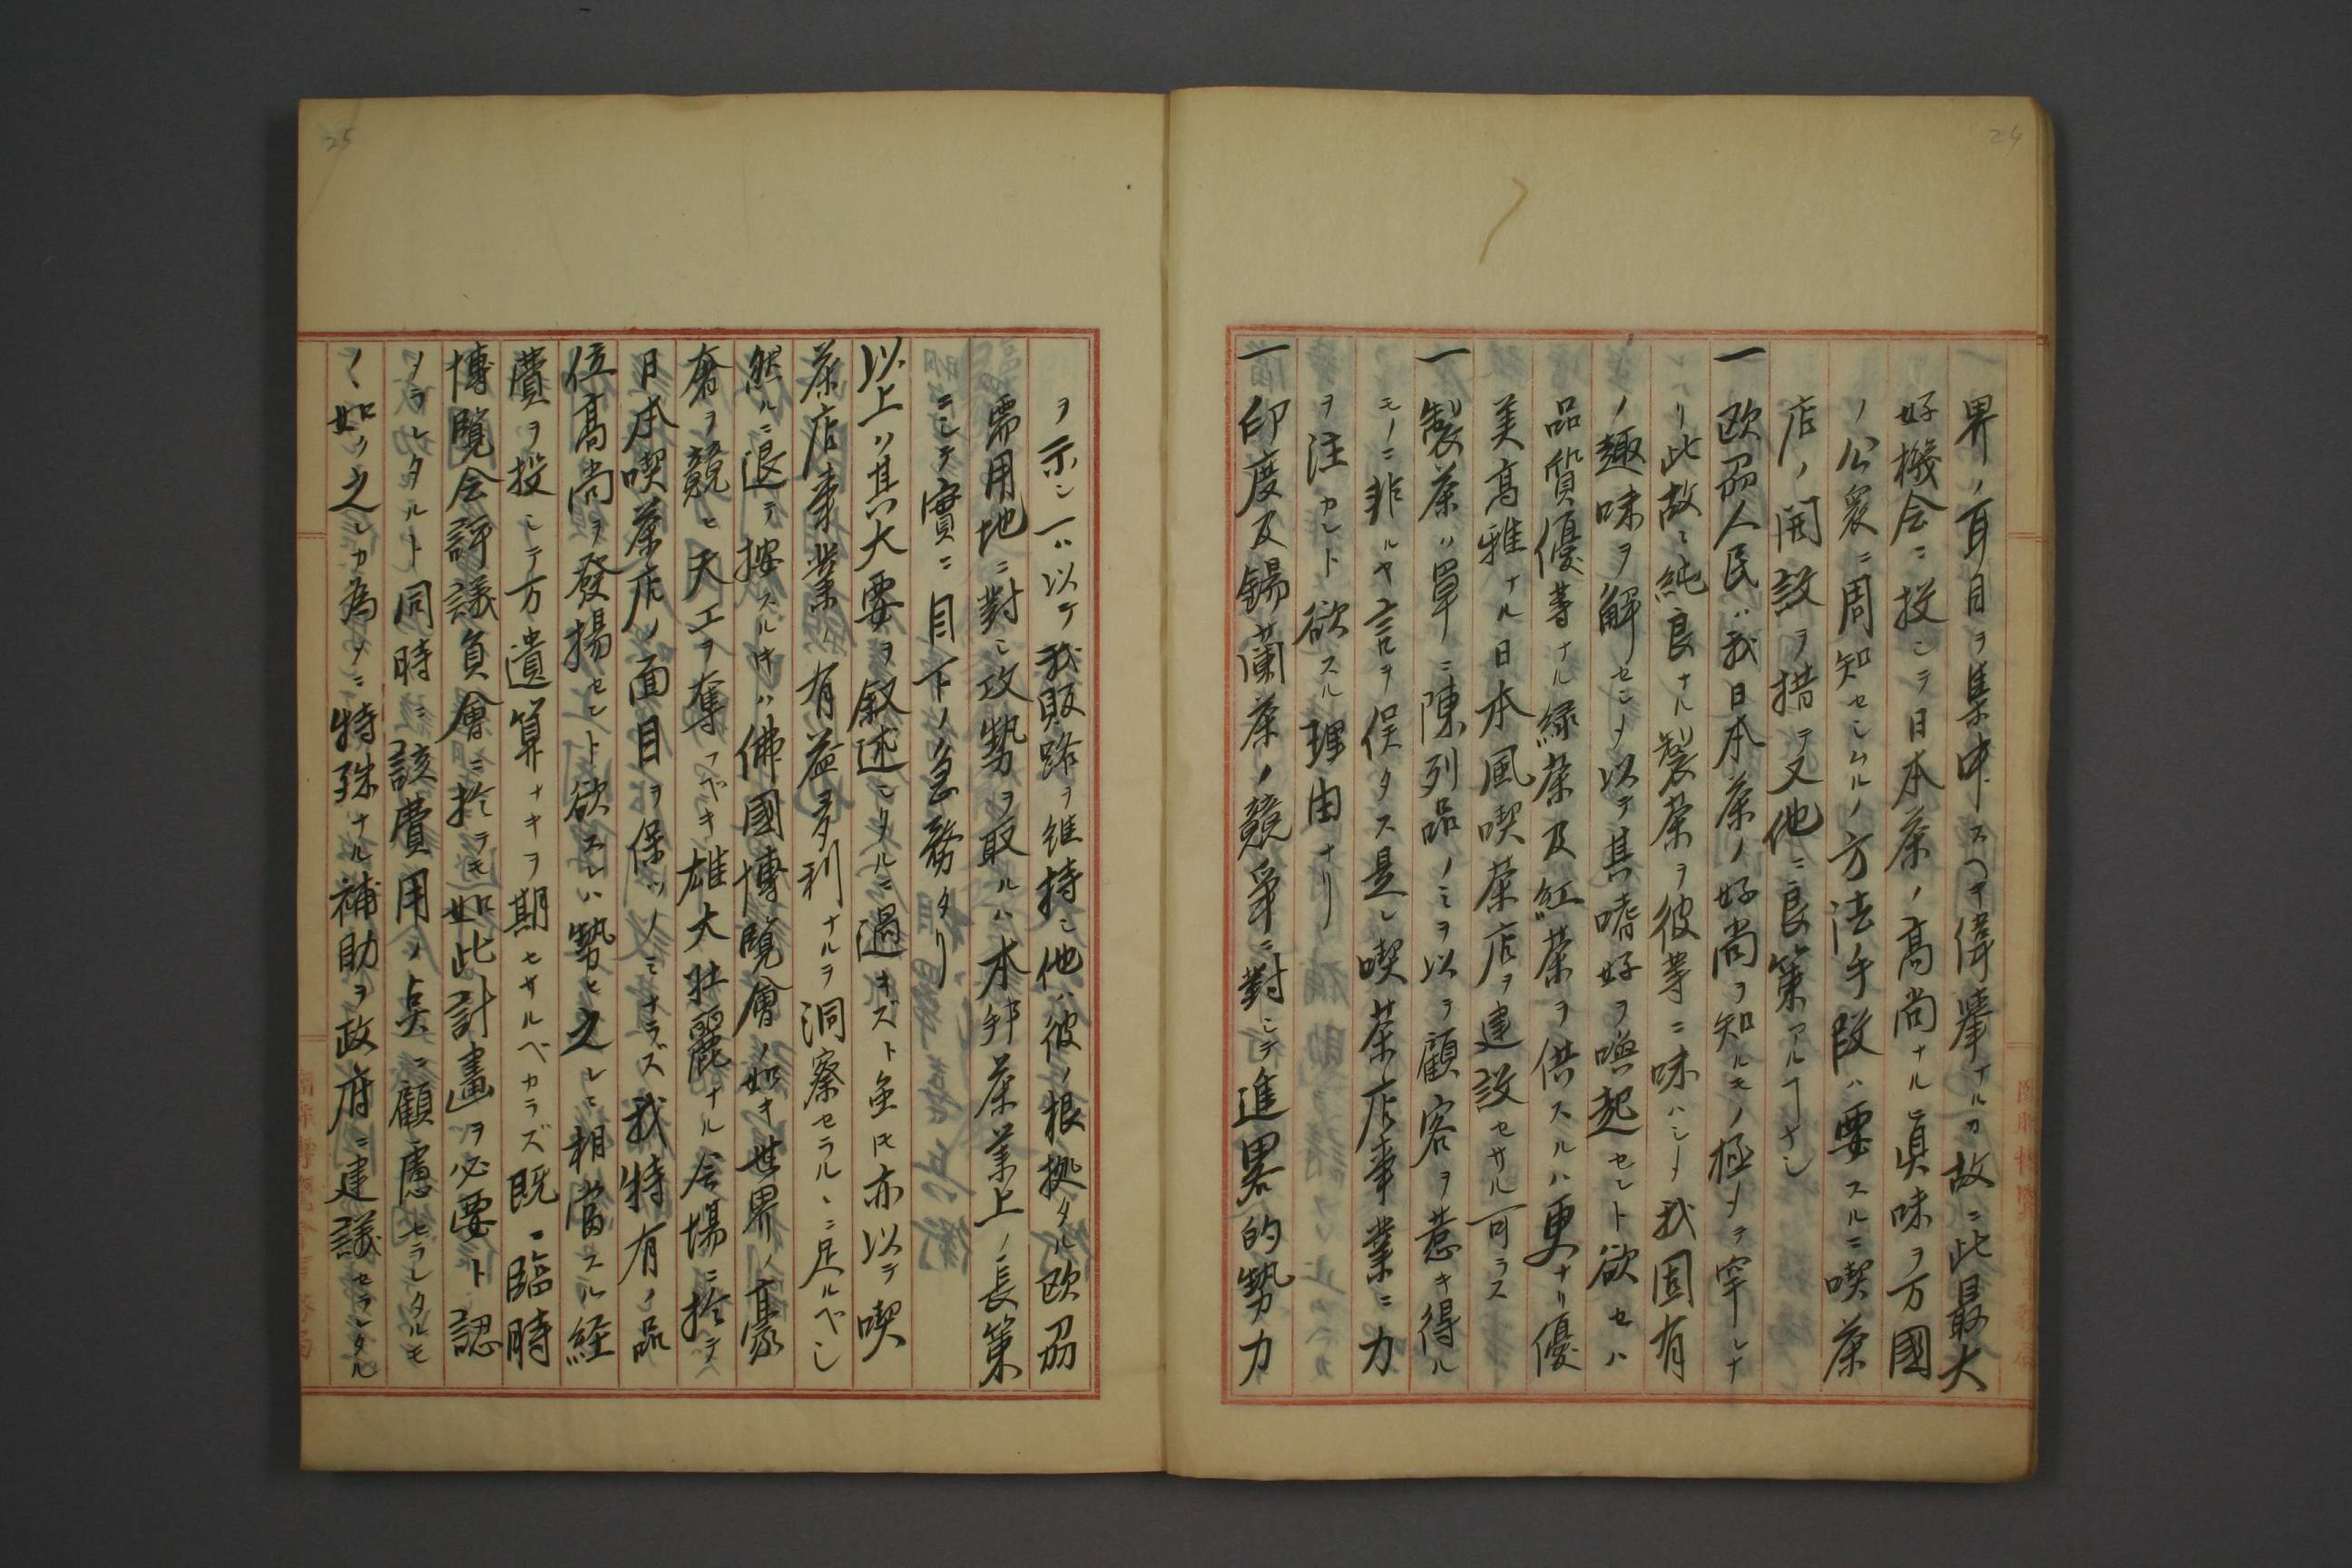 24
界ノ耳目ヲ集中スヘキ偉挙ナルカ故ニ此最大
好機会ニ投シテ日本茶ノ高尚ナル眞味ヲ万國
ノ公衆ニ周知セシムルノ方法手段ハ要スルニ喫茶
店ノ開設ヲ措テ又他ニ良策アルヿナシ
一欧羽人民ハ我日本茶ノ好尚ヲ知ルモノ極メテ罕レナ
リ此故ニ純良ナル製茶ヲ彼等ニ味ハシメ我固有
ノ趣味ヲ解セシメ以テ其嗜好ヲ喚起セント欲セハ
品質優等ナル緑茶及紅茶ヲ供スルハ更ナリ優
美高雅ナル日本風喫茶店ヲ建設セサル可ラス
一製茶ハ單ニ陳列品ノミヲ以テ顧客ヲ惹キ得ル
モノニ非ルヤ言ヲ俟タス是レ喫茶店事業ニ力
ヲ注カント欲スル理由ナリ
一印度及錫蘭茶ノ競爭ニ對シテ進畧的勢力
25
ヲ示シ一ハ以テ我販路ヲ維持シ他ハ彼ノ根拠タル欧羽
需用地ニ對シ攻勢ヲ取ルハ本邦茶業上ノ長策
ニシテ實ニ目下ノ急務タリ
以上ハ其大要ヲ叙述シタルニ過キズト𫝆モ亦以テ喫
茶店事業ノ有益多利ナルヲ洞察セラルヽニ足ルベシ
然ルニ退テ按スルキハ佛國博覧會ノ如キ世界ノ豪
奢ヲ競ヒ天工ヲ奪フベキ雄大壮麗ナル会場ニ於テ
日本喫茶店ノ面目ヲ保ツノミナラズ我特有ノ品
位高尚ヲ發揚セント欲スレハ勢ヒ之レニ相當スル経
費ヲ投シテ万遺算ナキヲ期セサルベカラズ既ニ臨時
博覧会評議員會ニ於テモ如此計畫ヲ必要ト認
メラレタルト同時ニ該費用ノ点ニ顧慮セラレタルモ
ノヽ如ク之レカ為メニ特殊ナル補助ヲ政府ニ建議セラレタル